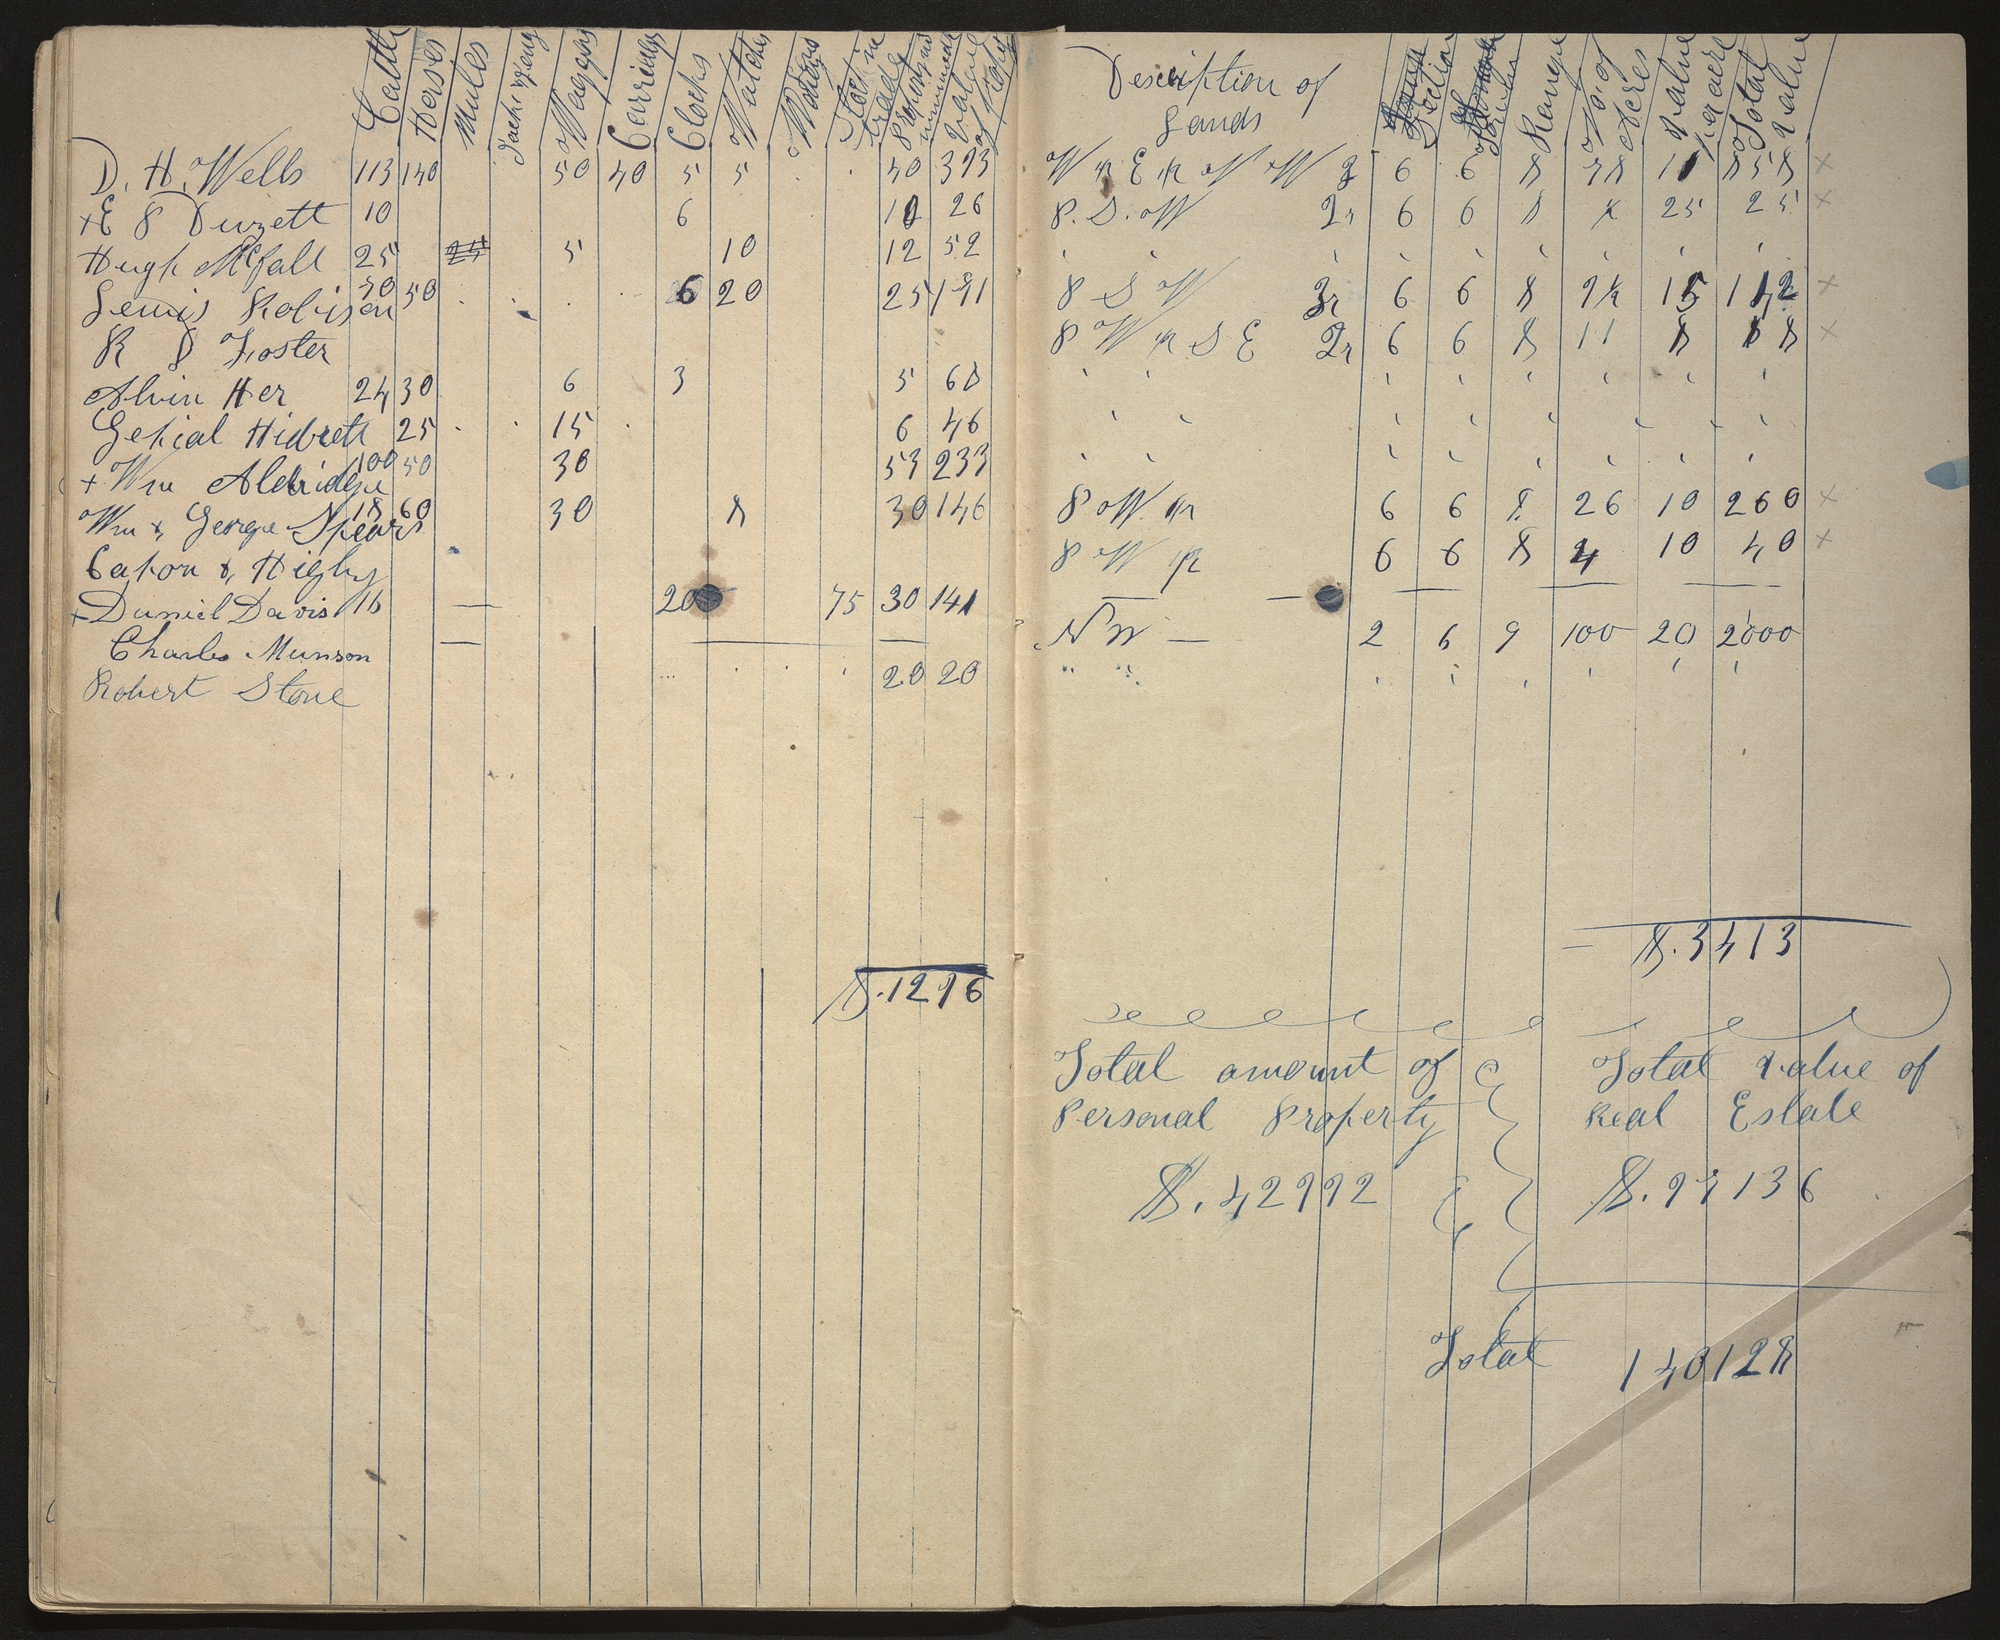 Cattle Horses Mules Waggons Carriages Clocks Watches Stock in trade value
D. H. Wells 113 140 50 40 5 5 40 393
+ E P Duzett 10 6 10 26
Hugh McFall 25 25 5 10 12 52
Lewis Robison 90 50 6 20 25 191
R D Foster
Alvin Her 24 30 6 3 5 68
Gehial Hidrett 25 15 6 46
+ Wm Aldridge 100 50 30 53 233
Wm & George Spears 18 60 30 8 30 146
Cahon & Higby
+ Daniel Davis 16 — 20 75 30 141
Charles Munson —
Robert Stone 20 20
$.1296
Description of Lands Section Range No. of Acres value per acre Total value
6 6 8 78 11 858 ×
P. S. W Qr 6 6 8 25 25 ×
P S W Qr 6 6 8 15 ×
P W pr S E Qr 6 6 8 11 8 88 ×
P W pr 6 6 8 26 10 260 ×
P W pr 6 6 8 4 10 40 ×
N W — 2 6 9 100 20 2000
— $.3413
Total amount of
Personal Property
$.42992
Total value of
Real Estate
$.97136
Total 140128